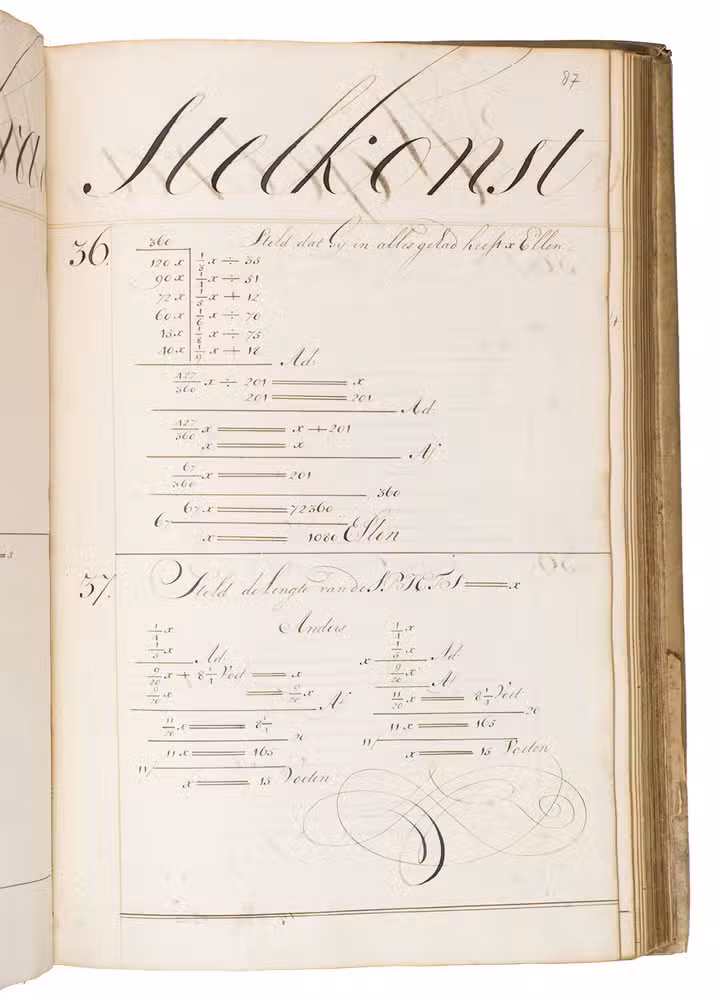 87
Stelkonst
36. 360 Steld dat Gy in alles gehad heeft x Ellen
120 x | 1/3 x ÷ 35
90 x | 1/4 x ÷ 51
72 x | 1/5 x + 12
60 x | 1/6 x ÷ 70
45 x | 1/8 x ÷ 75
40 x | 1/9 x + 18
Ad:
427/360 x ÷ 201 = x
201 = 201
Ad:
427/360 x = x + 201
x = x
Af
67/360 x = 201
360
67 x = 72360
67
x = 1080 Ellen
37. Steld de Lengte van de = x
Anders
1/4 x 1/4 x
1/5 x 1/5 x
Ad: x Ad:
9/20 x + 8 1/4 Voet = x 9/20 x
Af
9/20 x = 9/20 x 11/20 x = 8 1/4 Voet
Af 20
11/20 x = 8 1/4 11 x = 165
20 11/
11 x = 165 x = 15 Voeten
11/
x = 15 Voeten